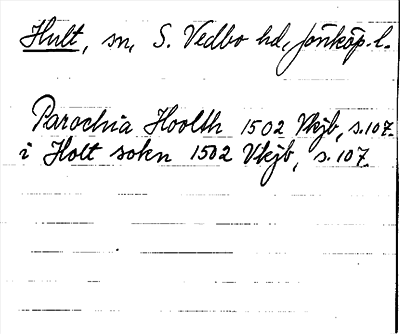 Hult, sn, S. Vedbo hd, Jönköp. l.
Parochia Hoolth 1502 Vkjb, s. 107.
i Holt sokn 1502 Vkjb, s. 107.